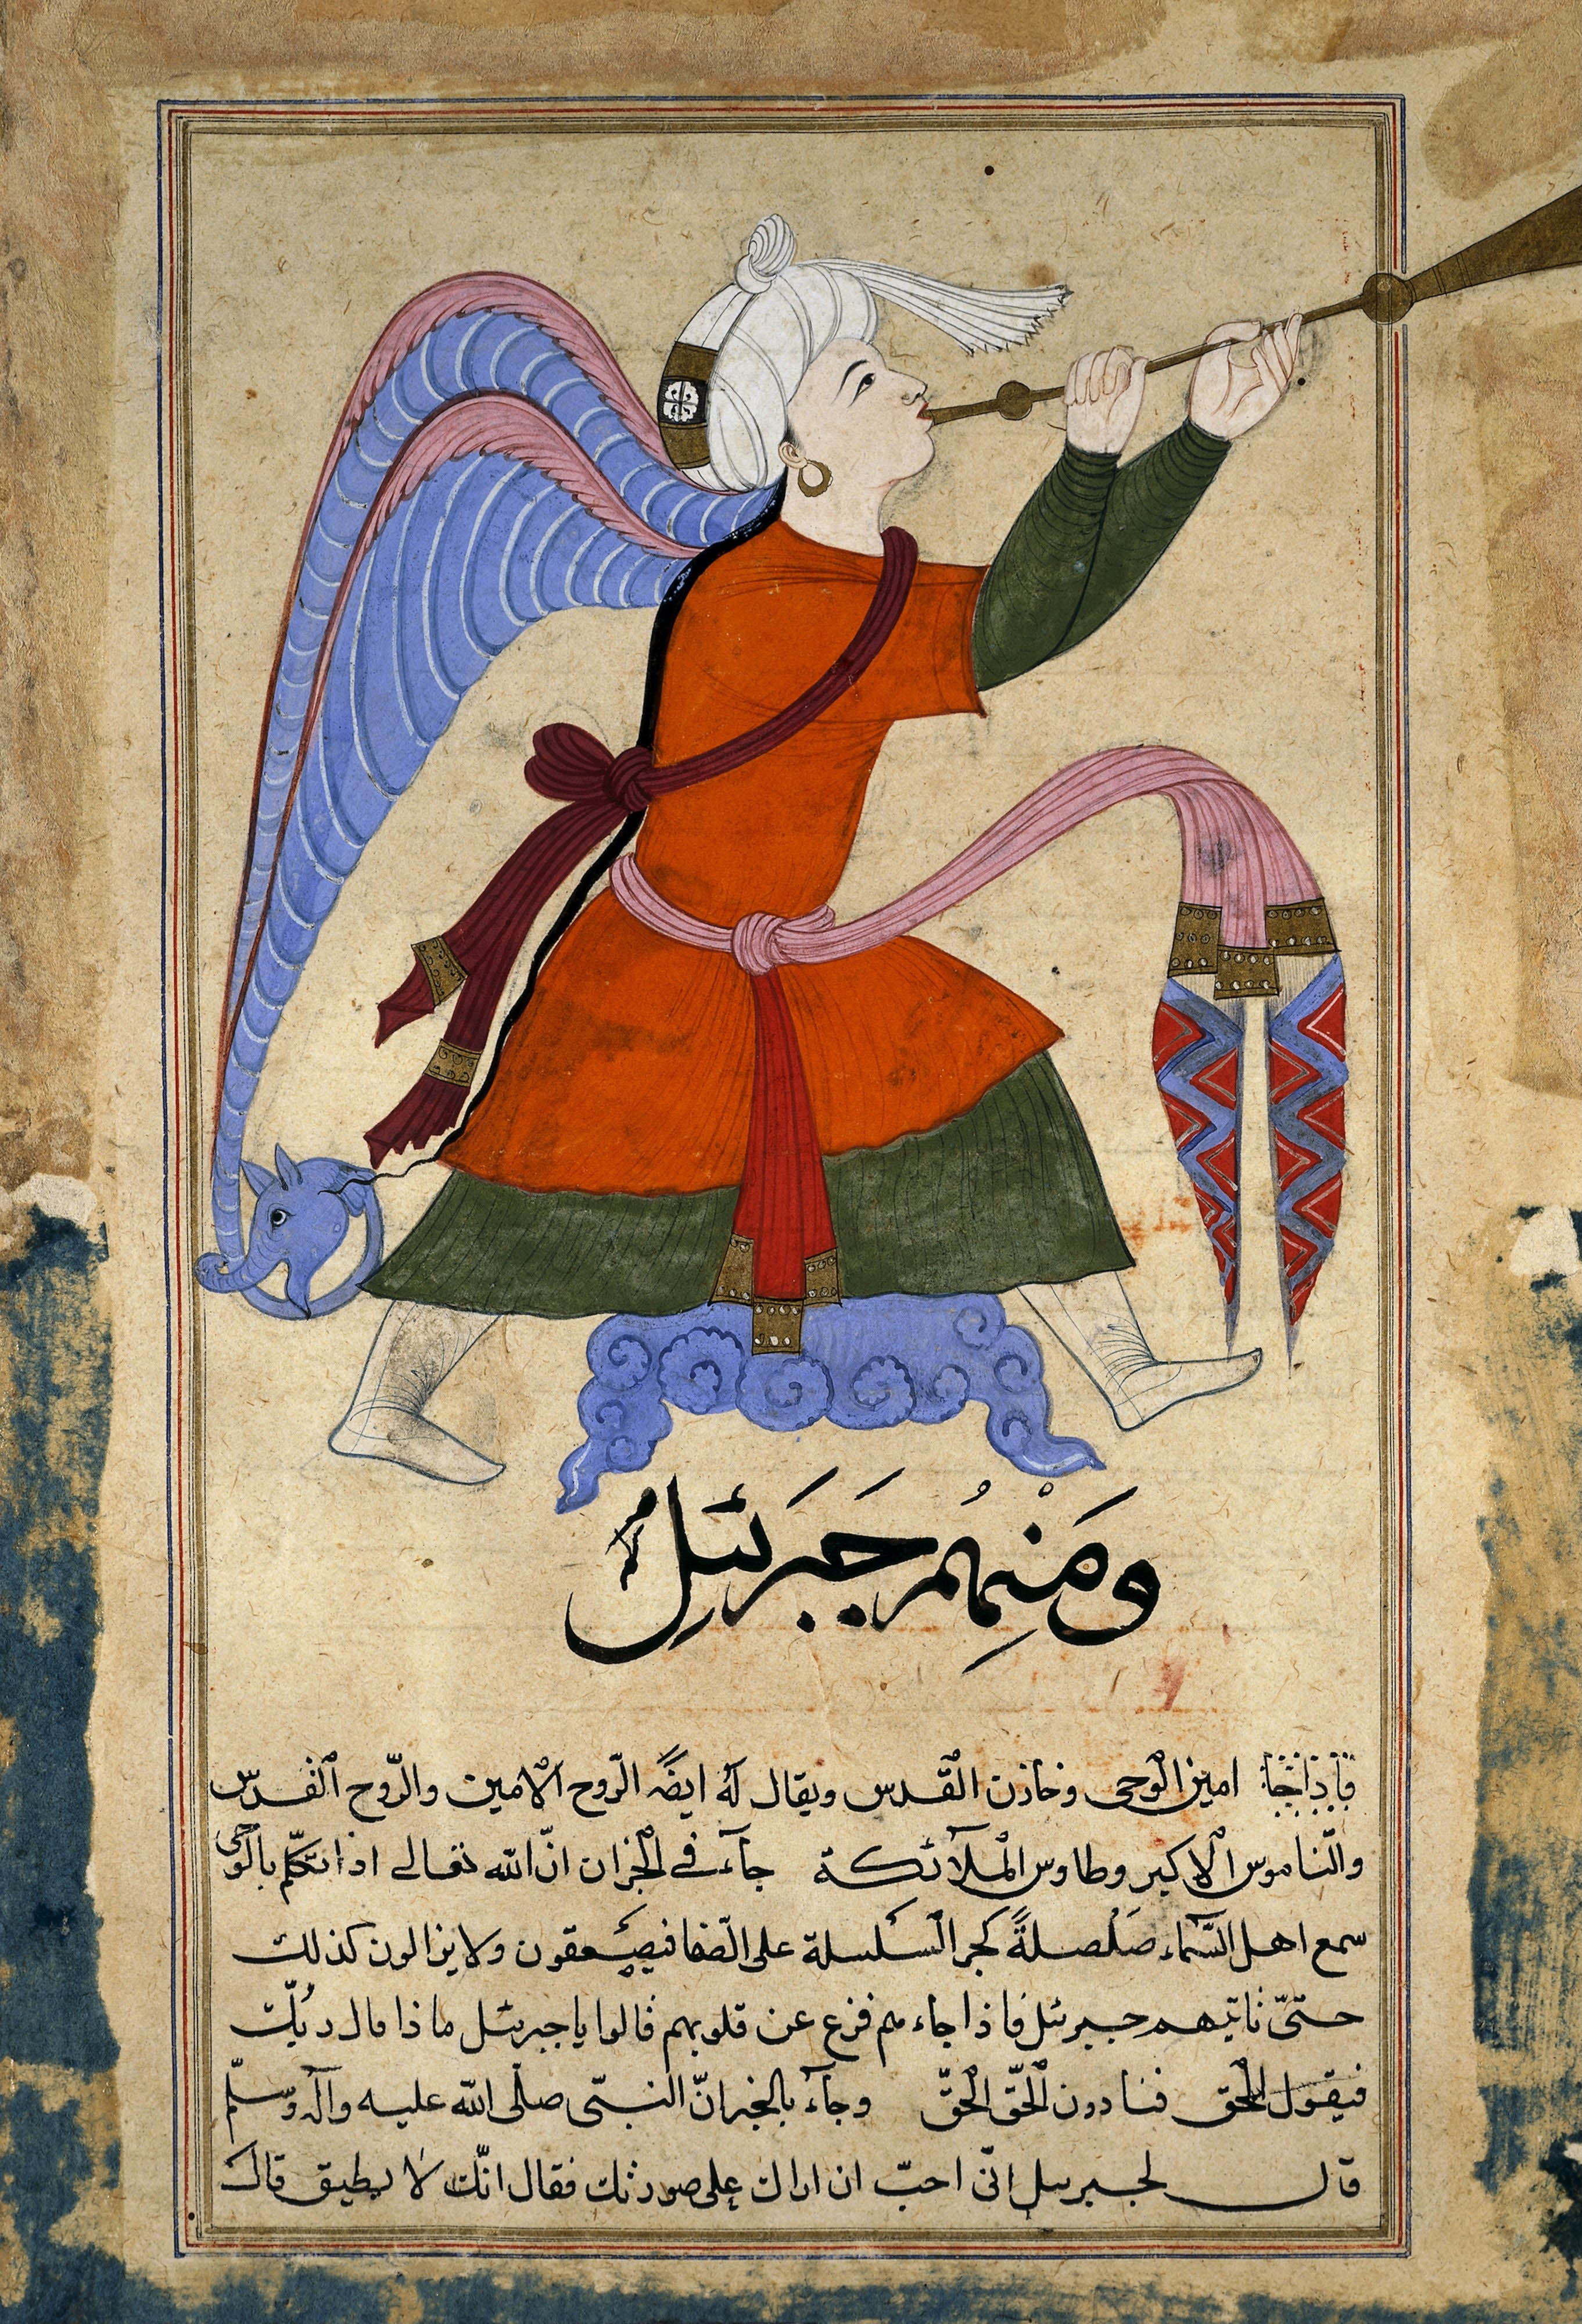 وَمَنْهُم جَبَرئيل
امين الوحى وخازن القدس ويقال لهُ ايضًا الرّوح الامين والرّوح القدس
والنّاموس الاكبر وطاوس الملآئكة جآء فى الخبر ان انّ الله تعالى اذا تكلّم بالوحى
سمع اهل السّمآء صَلْصلةً كجر السّلسلة على الصّفا فيصعقون ولا يزالون كذلك
حتىّ ياتيهم جبرئيل فاذا جاءهم فزع عن قلوبهم قالوا يا جبرئيل ماذا قال ربّك
فيقول الحق فينادون الحّق الحقّ وجآء بالخبر انّ النبىّ صلى الله عليه وآله وسلّم
قال لجبرئيل انّى احبّ ان اراك على صورتك فقال انّك لا تطيق قال